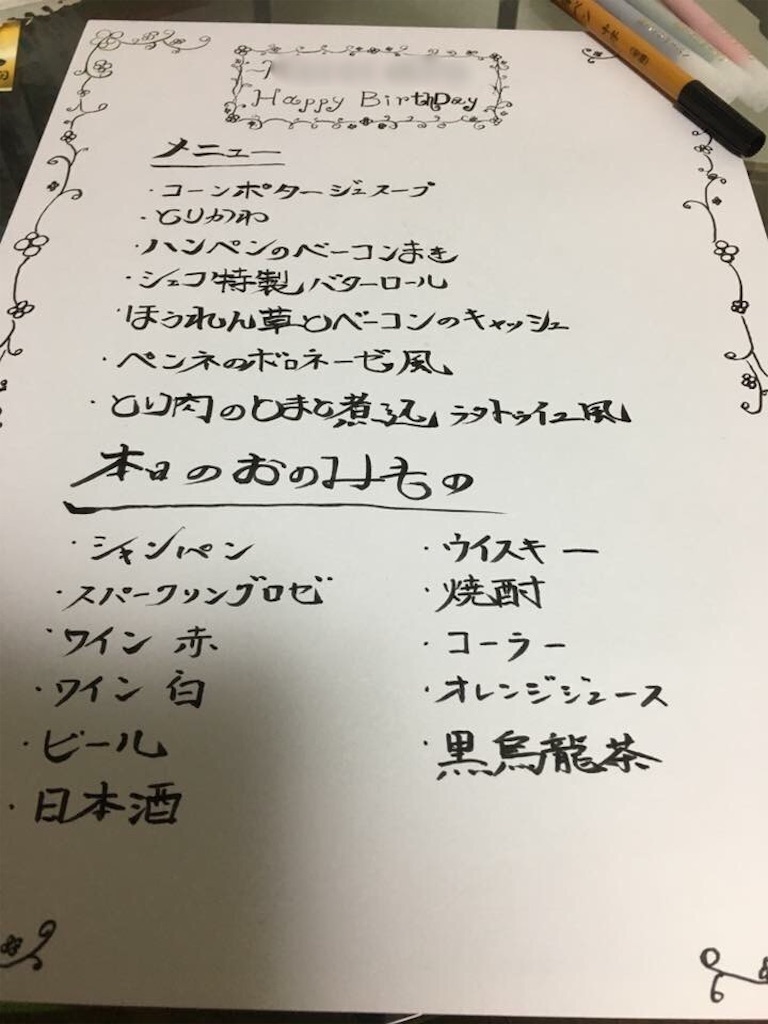 Happy BirthDay
メニュー
・コーンポタージュスープ
・とりかわ
・ハンペンのベーコンまき
・シェフ特製バターロール
・ほうれん草とベーコンのキャッシュ
・ペンネのボロネーゼ風
・とり肉のとまと煮込 ラタトゥイユ風
本日のおのみもの
・シャンパン ・ウイスキー
・スパークリングロゼ ・焼酎
・ワイン 赤 ・コーラー
・ワイン 白 ・オレンジジュース
・ビール ・黒烏龍茶
・日本酒